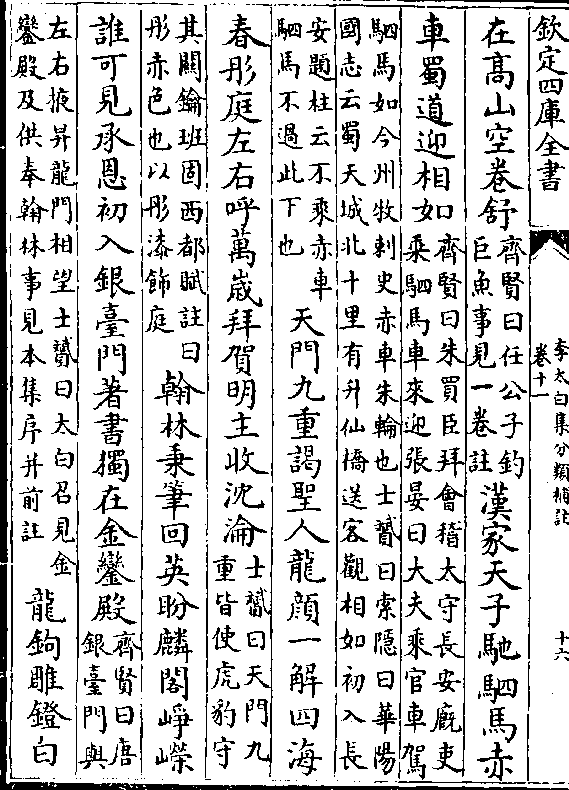 欽定四庫全書
李太白集分類補註
卷十一
十六
在髙山空卷舒
齊賢曰任公子釣
巨魚事見一卷註
漢家天子馳駟馬赤
車蜀道迎相如
齊賢曰朱買臣拜會稽太守長安廐吏
乗駟馬車來迎張晏曰大夫乘官車駕
駟馬如今州牧刺史赤車朱輪也士贇曰索隱曰華陽
國志云蜀天城北十里有升仙橋送客觀相如初入長
安題柱云不乘赤車
駟馬不過此下也
天門九重謁聖人龍顔一解四海
春彤庭左右呼萬嵗拜賀明主收沈淪
士贇曰天門九
重皆使虎豹守
其關鑰班固西都賦註曰
彤赤色也以彤漆飾庭
翰林秉筆回英盼麟閣崢嶸
誰可見承恩初入銀臺門著書獨在金鑾殿
齊賢曰唐
銀臺門與
左右掖昇龍門相望士贇曰太白召見金
鑾殿及供奉翰林事見本集序并前註
龍鉤雕鐙白